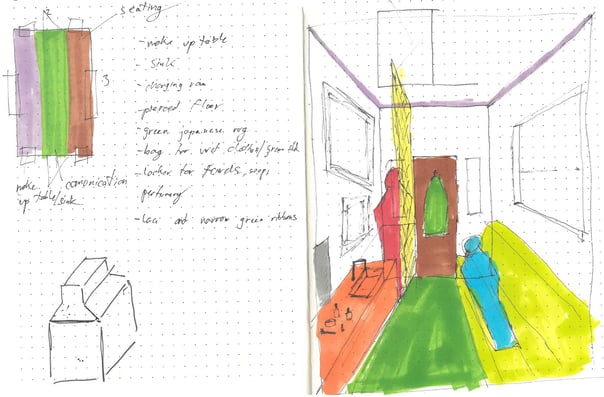 2
seating
- make up table
- sink
3
- changing room
- pierced floor
- green japanese rug
- bag for wet clothes/green silk
make
up table
/sink
comunication
- locker for towels, soaps
perfumery
- laci and narrow green ribbons